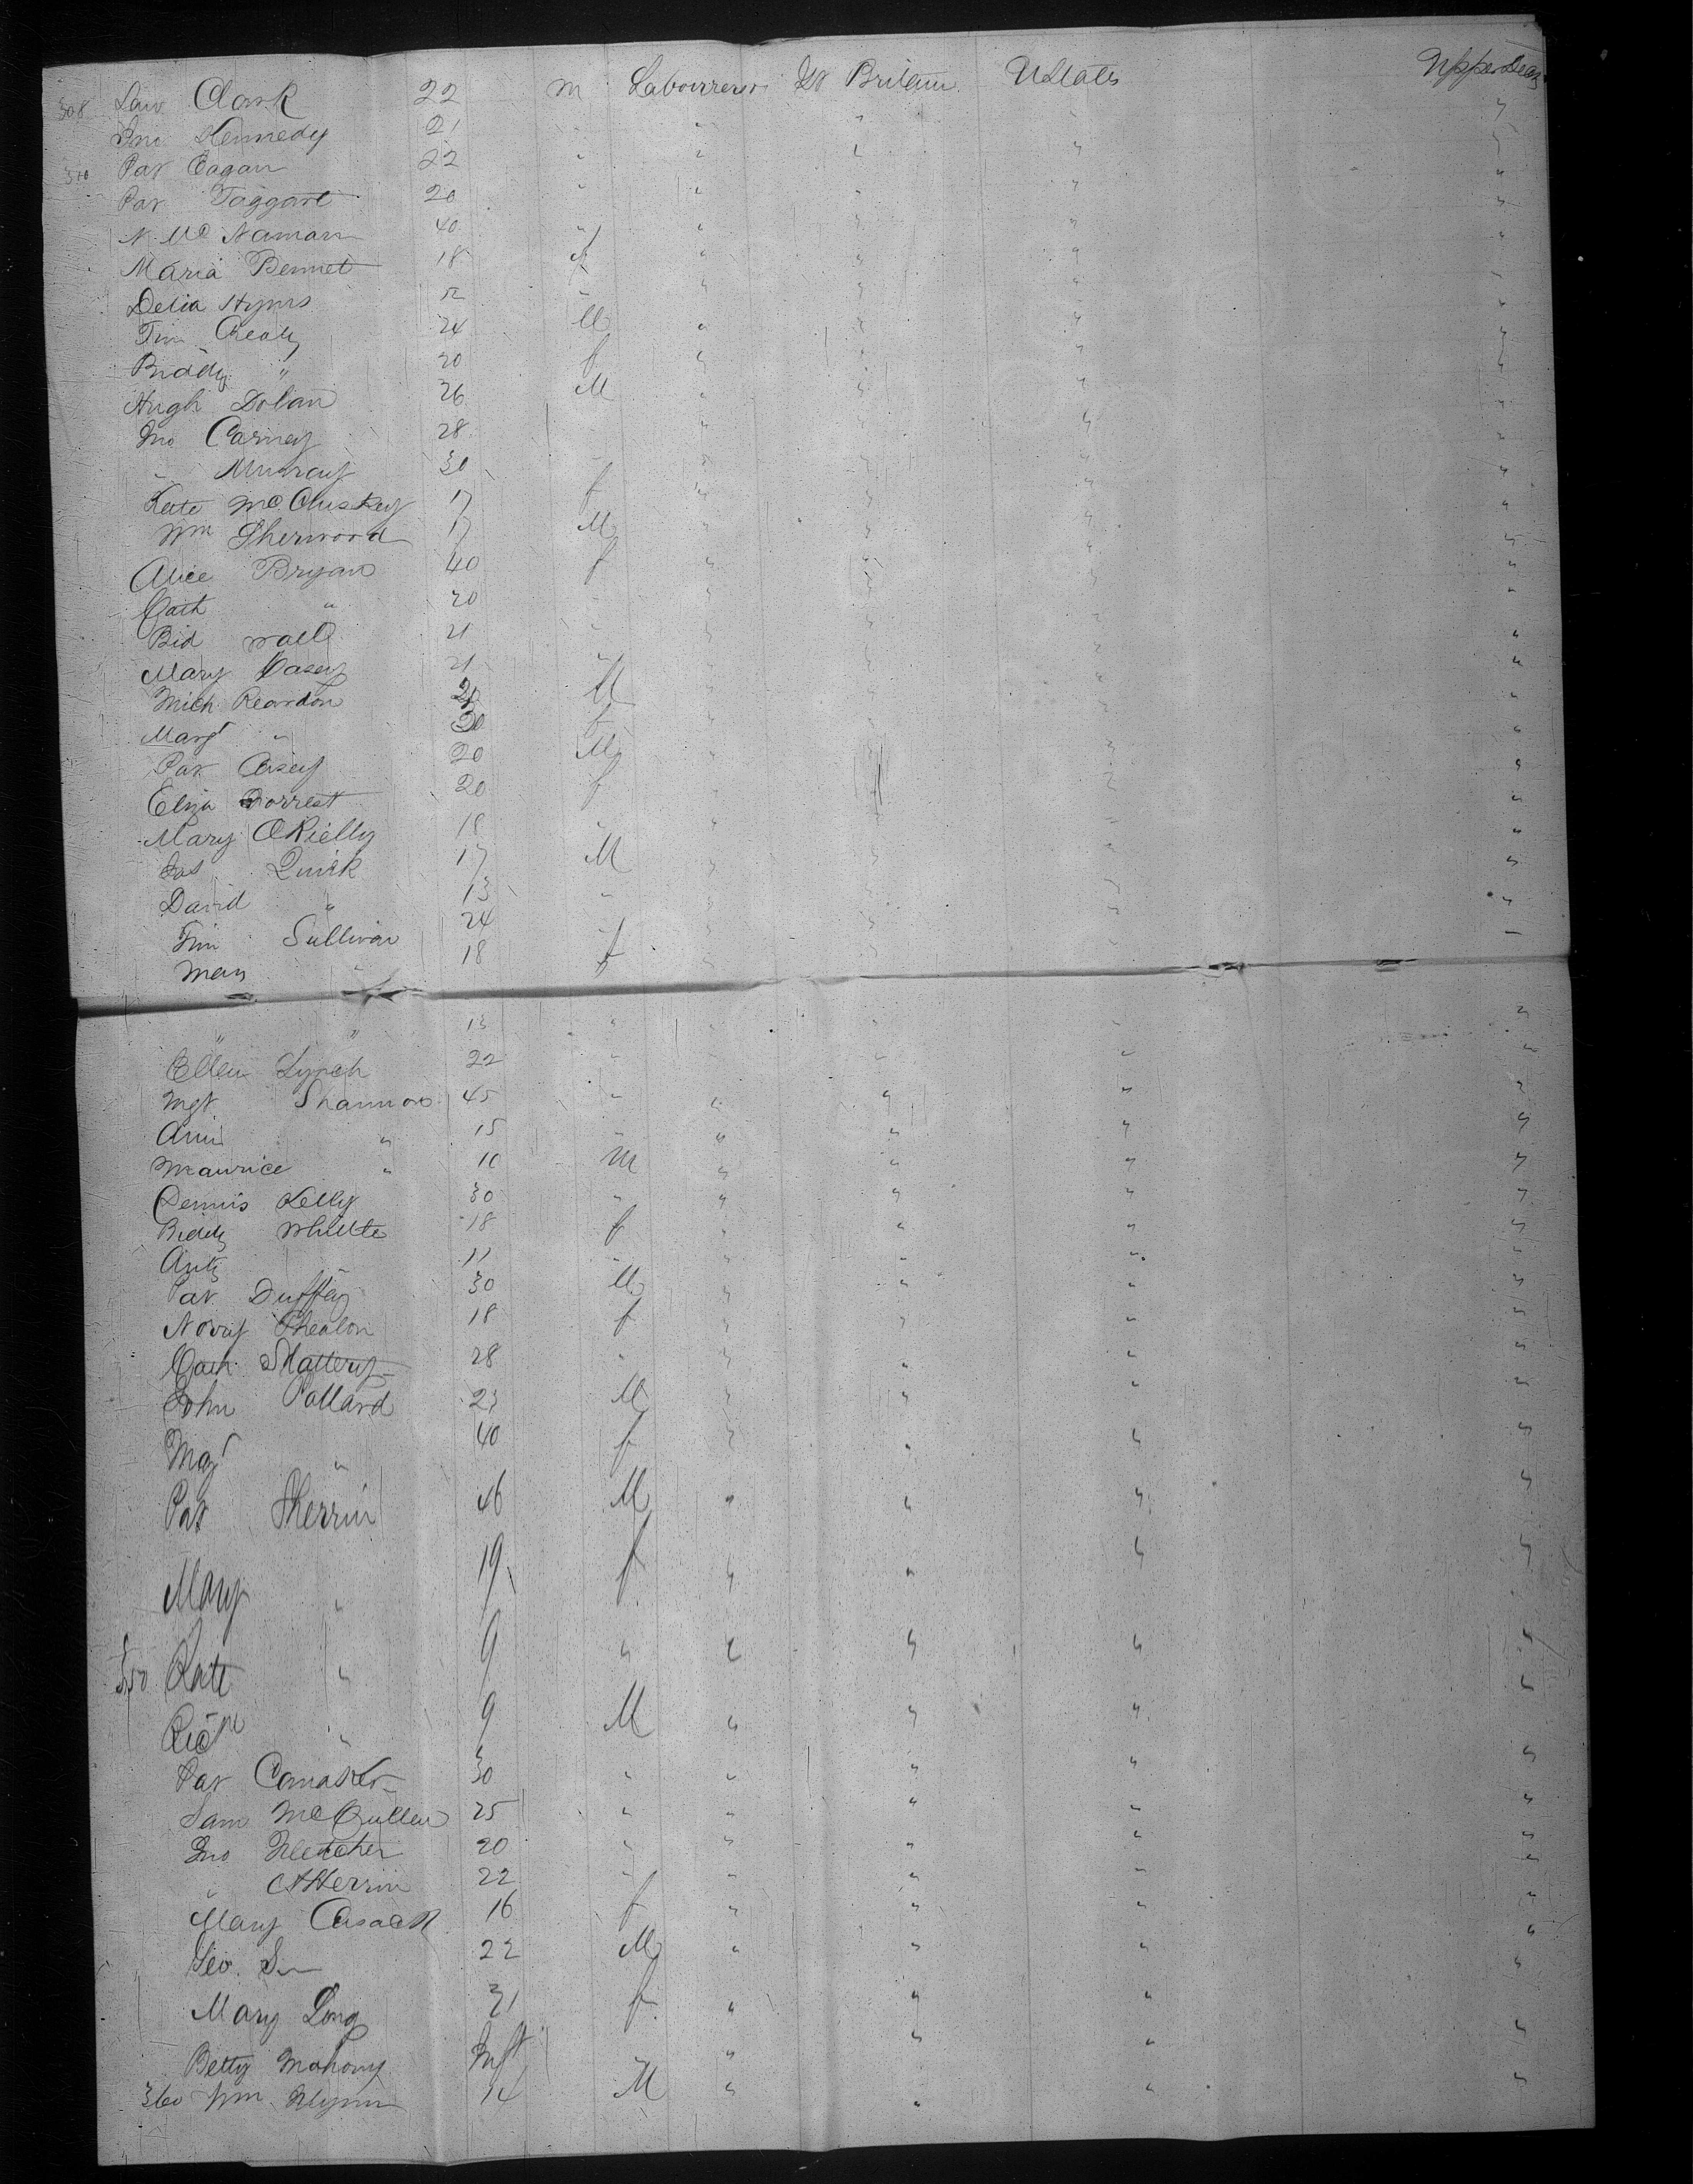 308 Law Clark 22 m Labourrers Gt Britain U States Upper Deck
Jno Kennedy 21 " " " " "
310 Pat Eagan 22 " " " " "
Pat Taggart 20 " " " " "
N. McNamara 40 " " " " "
Maria Bennet 18 f " " " "
Delia Hyns " " " " "
Tim Healy 24 M " " " "
Biddy " 20 f " " " "
Hugh Dolan 26 M " " " "
Jno Carney 28 " " " " "
" Murray 30 " " " " "
Kate McCluskey 17 f " " " "
Wm Sherwood 17 M " " " "
Alice Bryan 40 f " " " "
Cath " 20 " " " " "
Bid Wall 21 " " " " "
Mary Casey 21 " " " " "
Mich Reardon M " " " "
Margt " 20 f " " " "
Pat Casey 20 M " " " "
Eliza Forrest 20 f " " " "
Mary O'Rielly 18 " " " " "
Jas Quirk 17 M " " " "
David " 13 " " " " "
Tim Sullivan 24 " " " " "
Mary " 18 f " " " "
" " 13 " " " " "
Ellen Lynch 22 " " " " "
Mgt Shannon 45 " " " " "
Ann " 15 " " " " "
Maurice " 10 M " " " "
Dennis Kelly 30 " " " " "
Biddy 18 f " " " "
" 11 " " " " "
Pat Duffey 30 M " " " "
Phealon 18 f " " " "
Cath Slattery 28 " " " " "
John Pollard 23 M " " " "
Mgt " 40 f " " " "
Pat Sherrin 46 M " " " "
Mary " 19 f " " " "
350 Kate " 9 " " " " "
Richd " 9 M " " " "
Pat 30 " " " " "
Sam McCullen 25 " " " " "
Jno Fletcher 20 " " " " "
" 22 " " " " "
Mary Cusack 16 f " " " "
Geo. 22 M " " " "
Mary Long 31 f " " " "
Betty Mahony Inft " " " " "
360 Wm Flynn 14 M " " " "